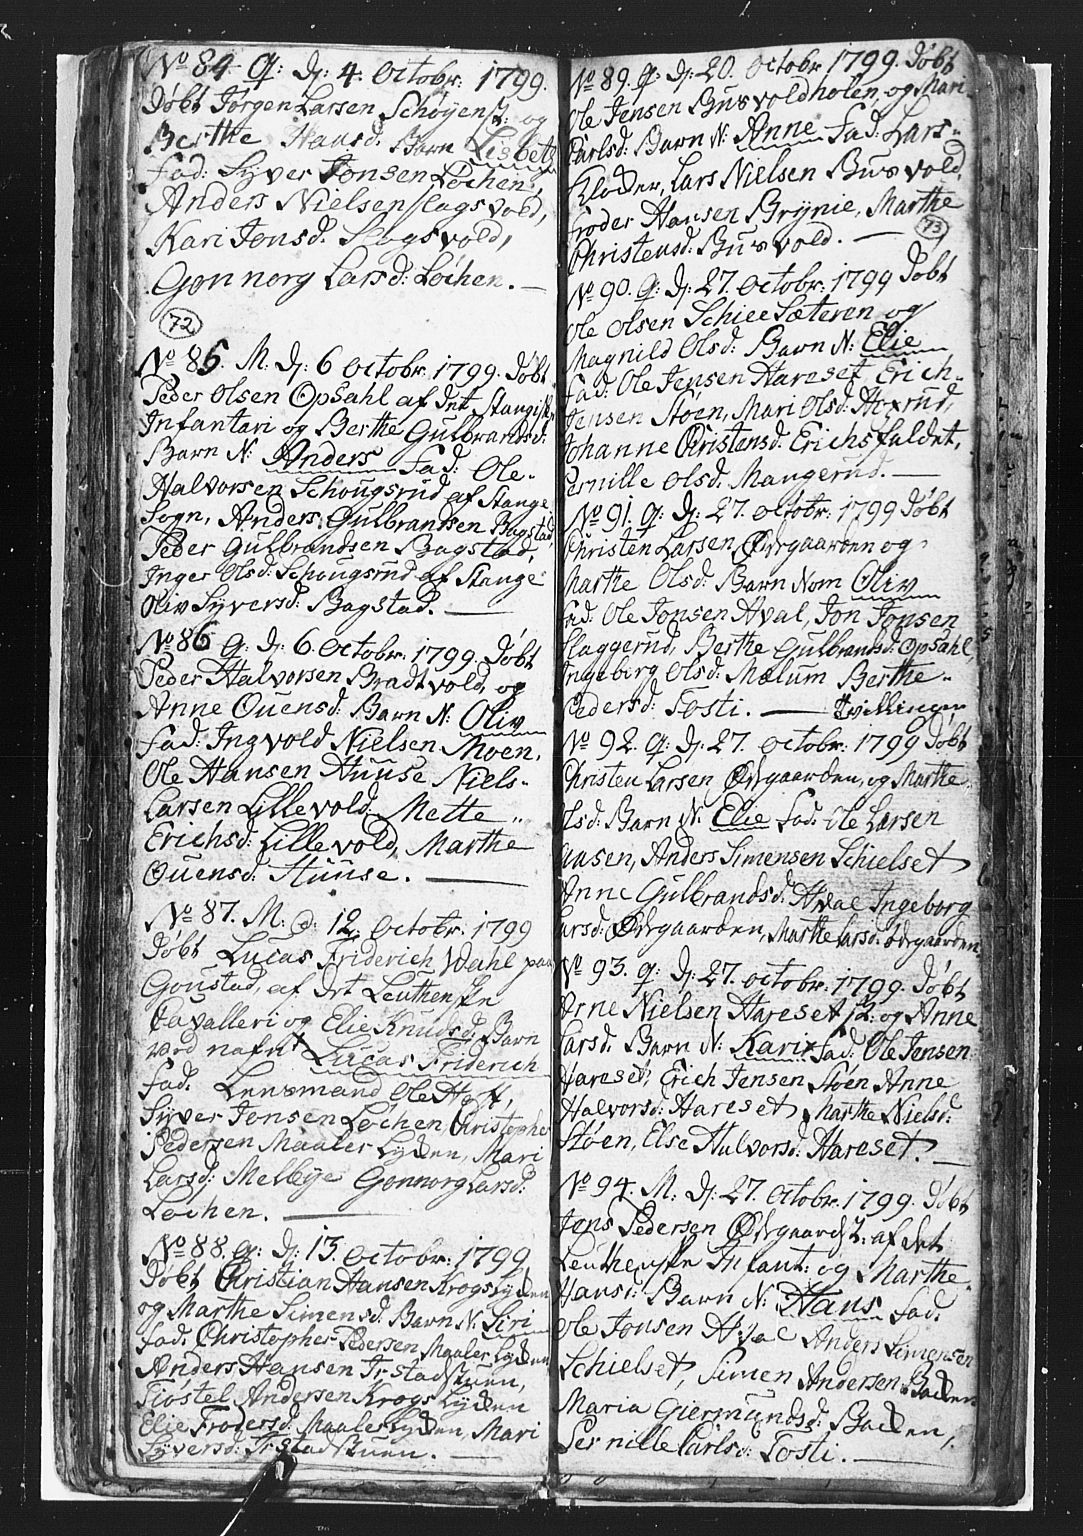 No 84 Q: D: 4: Octobr: 1799.
Døbt Jørgen Larsen Schøyenst: og
Berthe Hansd. Barn Lisbeth
fad: Syver Jonsen Løchen,
Anders Nielsen slagsvold,
Kari Jonsd: Slagsvold,
Gonnorg Larsd: Løchen. —
72
No 85. M. D: 6 Octobr: 1799. Døbt
Peder Olsen Opsahl af det Stangiske
Infantari og Berthe Gulbrandsd:
Barn N: Anders fad: Ole
Halvorsen Schougsrud af Stange
Sogn, Anders Gulbrandsen Bagstad,
Peder Gulbrandsen Bagstad,
Inger Olsd: Schougsrud af Stange
Oliv Syversd: Bagstad. —
No 86 Q: D: 6. Octobr: 1799. Døbt
Peder Halvorsen Bradtvold, og
Anne Ouensd: Barn N: Oliv
fad: Ingvold Nielsen Moen,
Ole Hansen Huuse Niels-
Larsen Lillevold, Mette
Erichsd: Lillevold, Marthe
Ouensd: Huuse. —
No 87. M: D: 12. Octobr: 1799
Døbt Lucas Friderich Wahl paa
Goustad, af det Leuthenske
Cavalleri og Elie Knudsd: Barn
ved nafn Lucas Friderich
fad. Lensmand Ole Hoff,
Syver Jonsen Løchen Christopher
Pedersen Maaler Lykken, Mari
Larsd: Melbye Gonnorg Larsd:
Løchen. —
No 88. Q: D: 13. Octobr: 1799
Døbt Christian Hansen Krogslykken
og Marthe Simensd: Barn N. Siri
fad: Christopher Pedersen Maaler Lykken
Anders Hansen Trstadstuen,
Kiostel Andersen Krogs Lykken
Elie Frodersd: Maaler Lykken, Mari
Syversd: Trstadstuen. —
No 89. Q: D: 20. Octobr 1799. Døbt
Ole Jensen Busvoldholen, og Mari
Carlsd: Barn N: Anne fad: Lars
Klokker, Lars Nielsen Busvold,
froder Hansen Brynie, Marthe
Christensd: Busvold. —
73
No 90. Q: D: 27. Octobr: 1799 Døbt
Ole Olsen Schiee Sæteren og
Magnild Olsd: Barn N: Elie
fad: Ole Jensen Hareset Erich
Jensen Støen, Mari Olsd: Hoxrud,
Johanne Christensd: Erichsfaldet,
Pernille Olsd: Mangerud. —
No 91. Q: D: 27. Octobr: 1799 Døbt
Christen Larsen Ødegaarden og
Marthe Olsd: Barn Nom Oliv
fad: Ole Jonsen Hval, Jon Jonsen
Slaggerud, Berthe Gulbrandsd: Opsahl,
Ingeborg Olsd: Mælum Berthe
Pedersd: Tosti. — Tvillinger
No 92. Q: D: 27. Octobr: 1799 Døbt
Christen Larsen Ødegaarden, og Marthe
Olsd: Barn N: Elie fad: Ole Larsen
Aasen, Anders Simensen Schielset
Anne Gulbrandsd: Hval Ingeborg
Larsd: Ødegaarden, Marthe Larsd: Ødegaarden.
No 93. Q: D: 27. Octobr: 1799. Døbt
Arne Nielsen Hareset, og Anne
Larsd: Barn N: Kari fad: Ole Jensen
Hareset, Erich Jensen Støen Anne
Halvorsd: Hareset, Marthe Nielsd:
Støen, Else Hulvorsd: Hareset. —
No 94. M: D: 27. Octobr: 1799. Døbt
Jens Pedersen Ødegaard af det
Leuthenske Infant: og Marthe
Hansd: Barn N: Hans fad:
Ole Jonsen Hval Anders Simensen
Schielset, Simen Andersen Bakken
Maria Giermundsd: Bakken,
Pernille Carlsd: Tosti. —